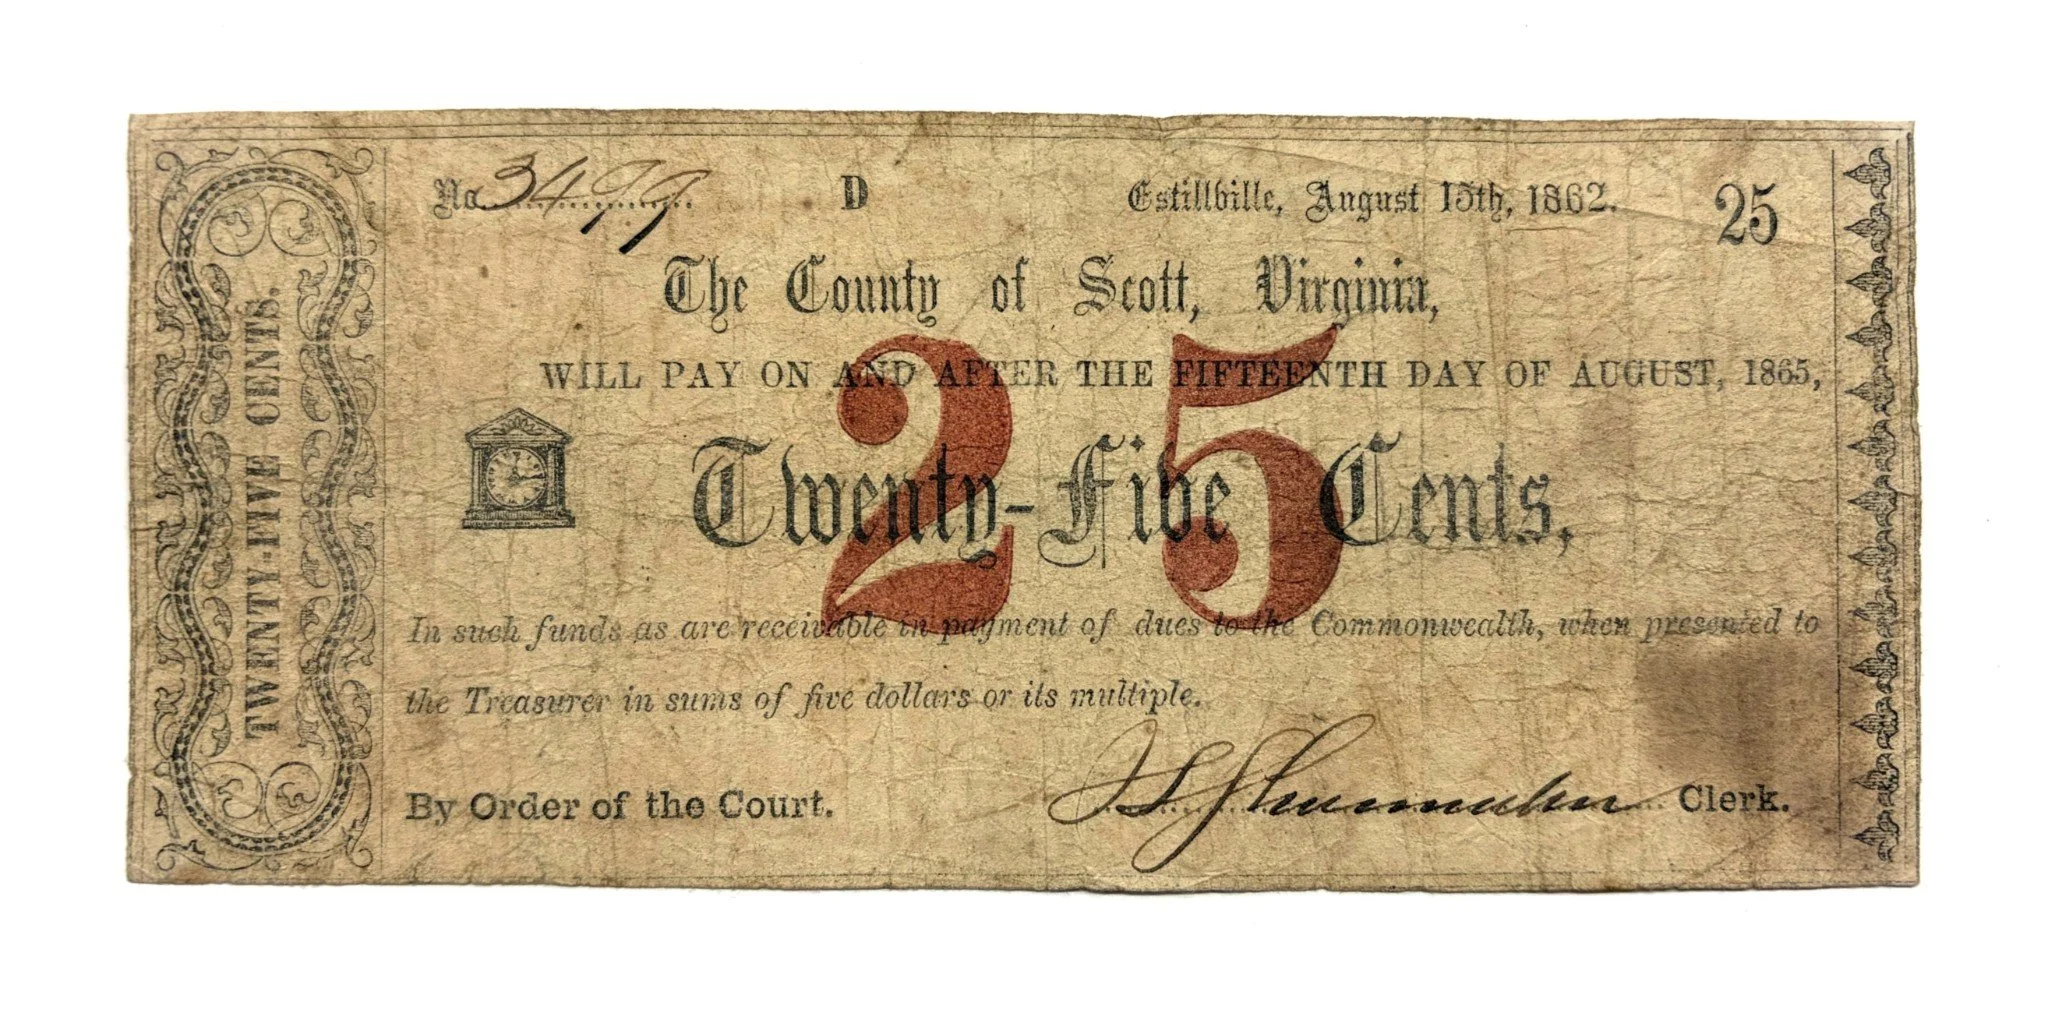 No 3499 D Estillville, August 15th, 1862. 25
The County of Scott, Virginia,
WILL PAY ON AND AFTER THE FIFTEENTH DAY OF AUGUST, 1865,
25
Twenty-Five Cents,
In such funds as are receivable in payment of dues to the Commonwealth, when presented to
the Treasurer in sums of five dollars or its multiple.
By Order of the Court. Shoemaker Clerk.
TWENTY-FIVE CENTS.